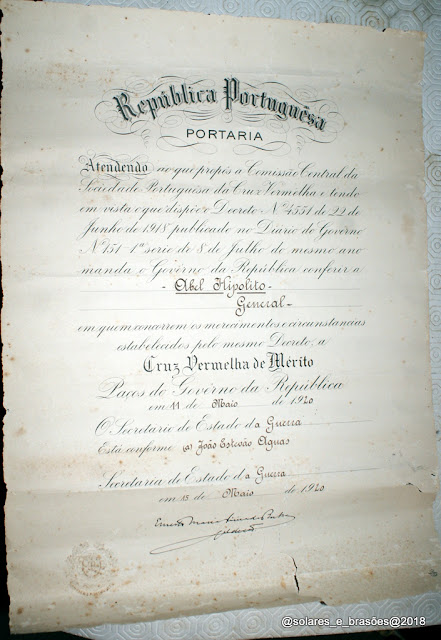 República Portuguêsa
PORTARIA
Atendendo ao que propôs a Comissão Central da
Sociedade Portuguêsa da Cruz Vermelha e tendo
em vista o que dispõe o Decreto Nº 4551 de 22 de
Junho de 1918 publicado no Diário do Govêrno
Nº 151 1ª serie de 8 de Julho do mesmo ano
manda o Govêrno da República conferir a
- Abel Hipolito -
General -
em quem concorrem os merecimentos e circunstancias
estabelecidos pelo mesmo Decreto, a
Cruz Vermelha de Mérito
Paços do Govêrno da República
em 11 de Maio de 1920
O Secretario de Estado da Guerra
Está conforme (a) João Estevão Aguas
Secretaria de Estado da Guerra
em 15 de Maio de 1920
@solares_e_brasões@2018